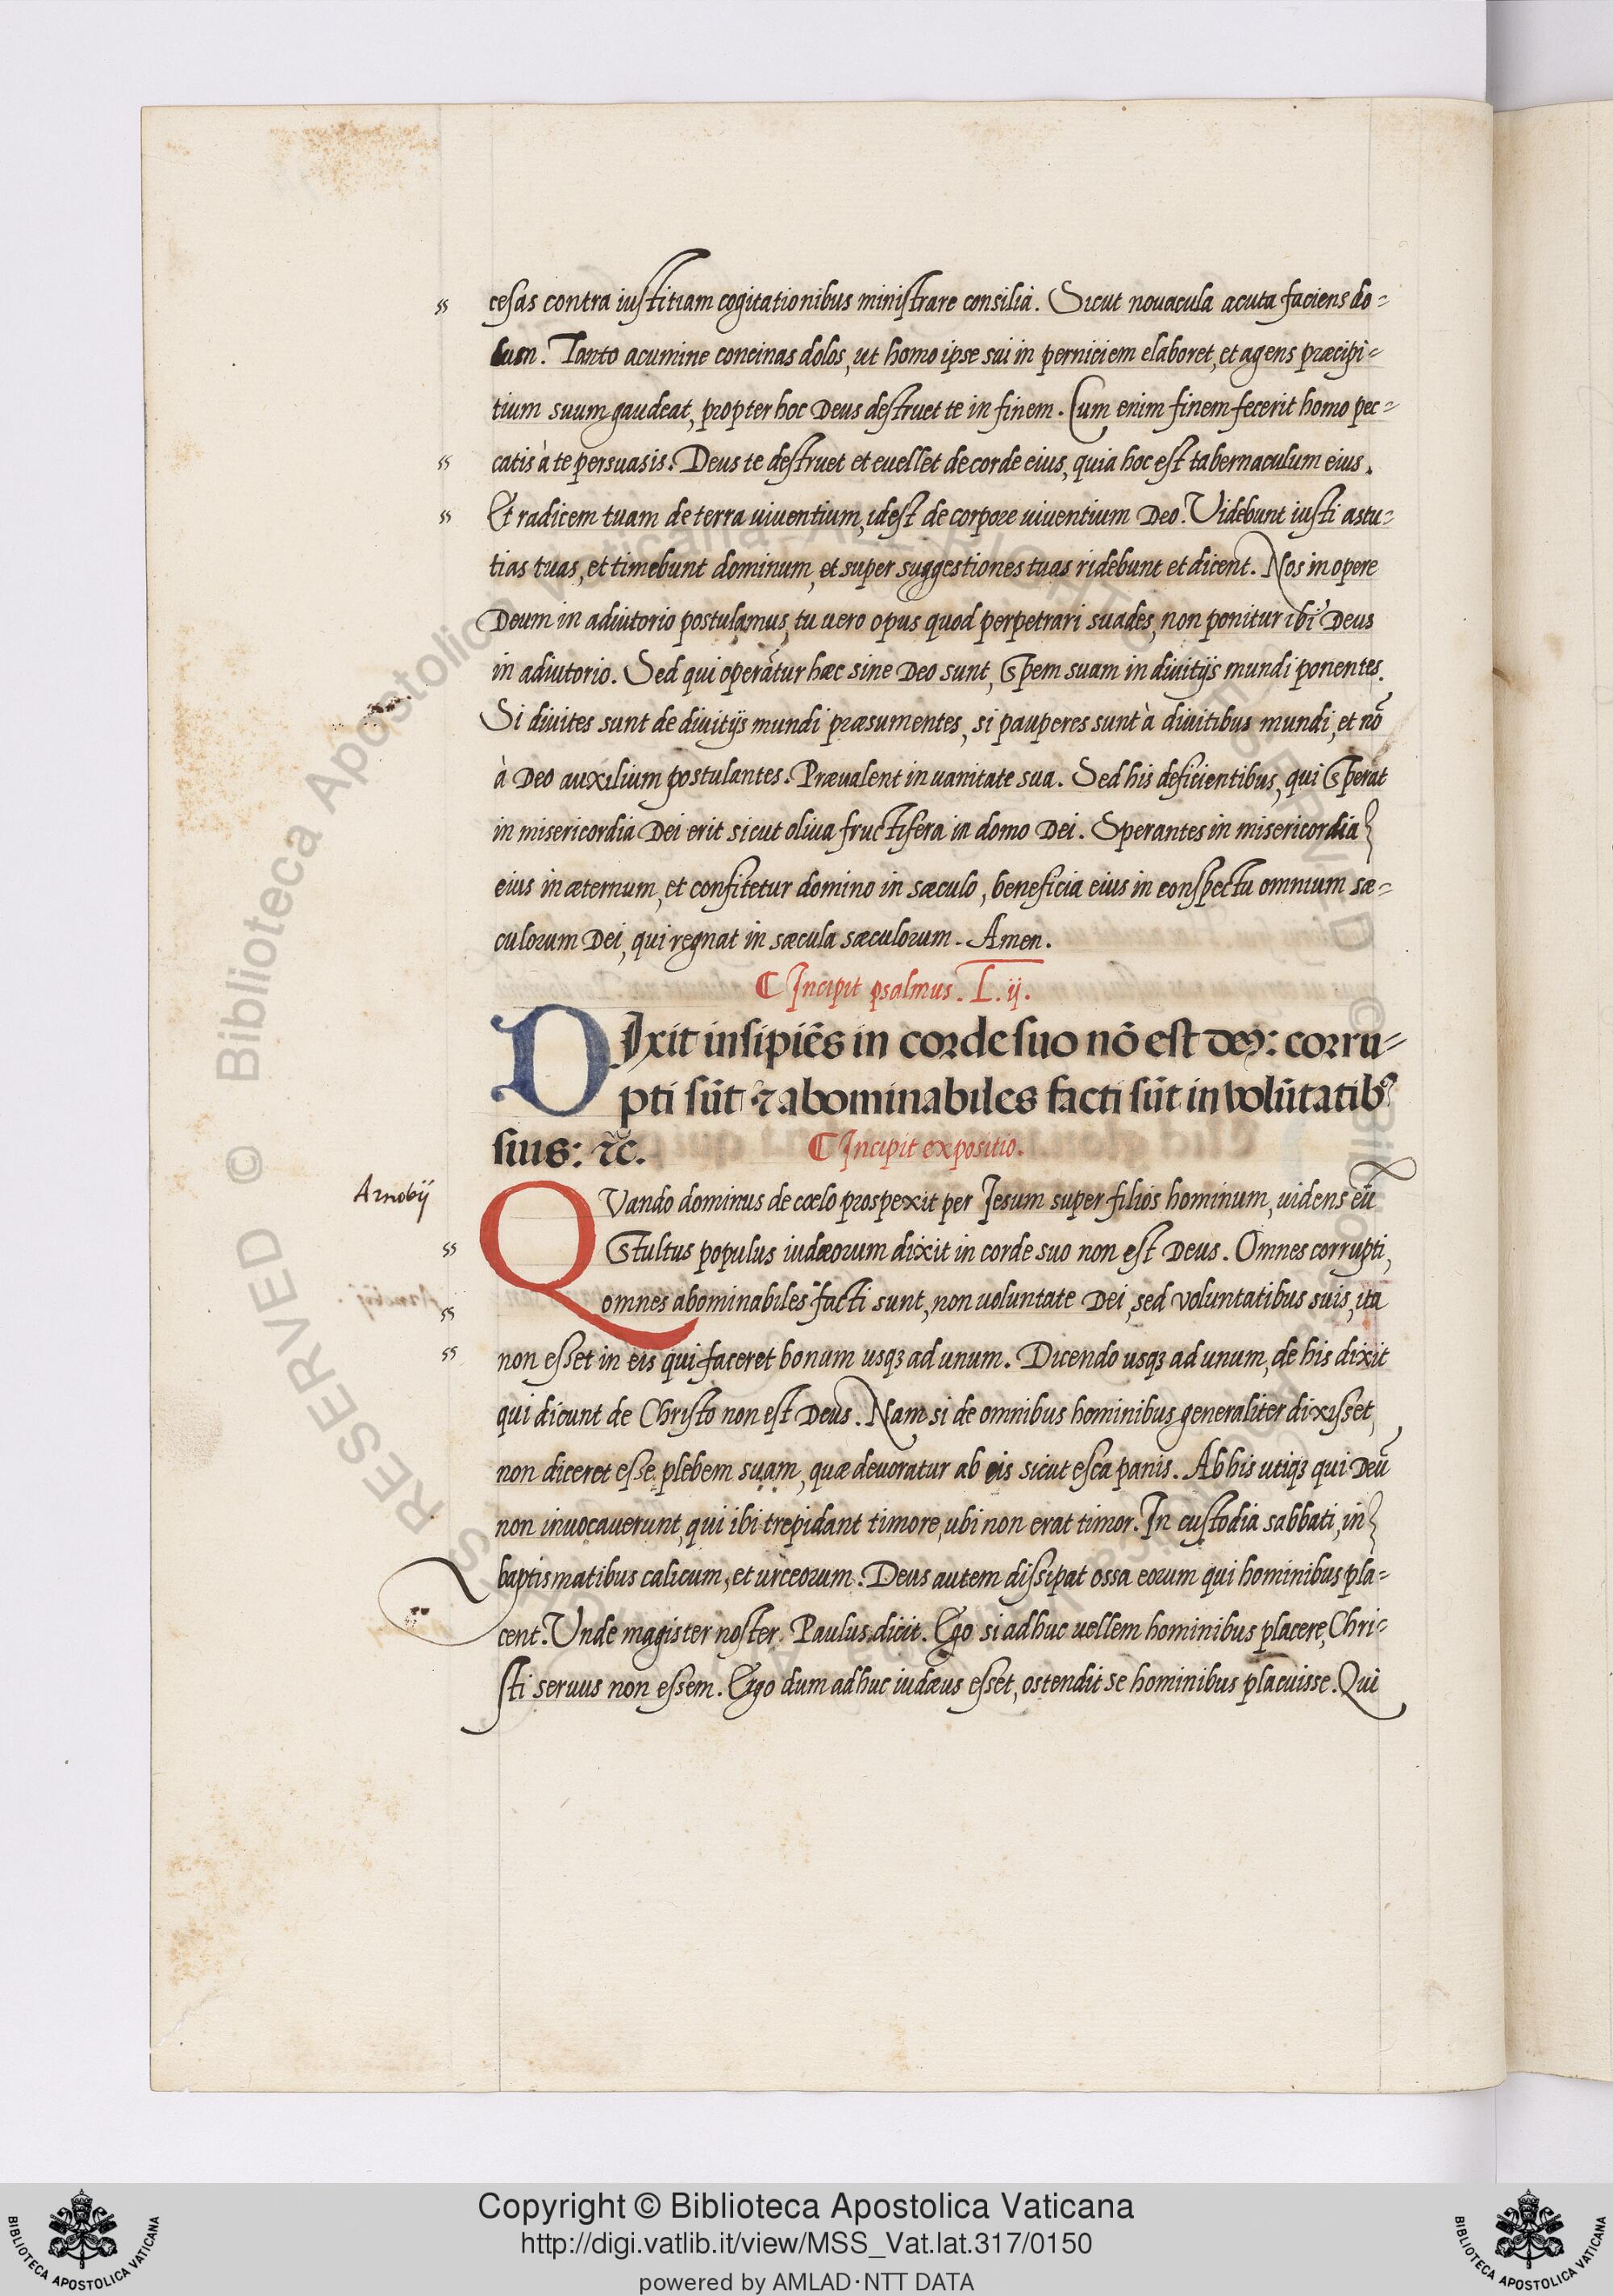 cesas contra iustitiam cogitationibus ministrare consilia. Sicut nouacula acuta faciens do-
lum. Tanto acumine concinas dolos, ut homo ipse sui in perniciem elaboret, et agens præcipi-
tium suum gaudeat, propter hoc Deus destruet te in finem. Cum enim finem fecerit homo pec-
catis à te persuasis. Deus te destruet et euellet de corde eius, quia hoc est tabernaculum eius.
Et radicem tuam de terra uiuentium, idest de corpore uiuentium Deo. Videbunt iusti astu-
tias tuas, et timebunt dominum, et super suggestiones tuas ridebunt et dicent. Nos in opere
Deum in adiutorio postulamus, tu uero opus quod perpetrari suades, non ponitur ibi Deus
in adiutorio. Sed qui operãtur hæc sine Deo sunt, spem suam in diuitijs mundi ponentes.
Si diuites sunt de diuitijs mundi præsumentes, si pauperes sunt à diuitibus mundi, et nõ
à Deo auxilium postulantes. Præualent in uanitate sua. Sed his deficientibus, qui sperat
in misericordia Dei erit sicut oliua fructifera in domo Dei. Sperantes in misericordia
eius in æternum, et confitetur domino in sæculo, beneficia eius in conspectu omnium sæ-
culorum Dei, qui regnat in sæcula sæculorum. Amen.
¶ Incipit psalmus. L.ij.
DIxit insipiẽs in corde suo nõ est deꝰ: corru-
pti sũt ⁊ abominabiles facti sũt in volũtatibꝰ
suis: ⁊c̃. ¶ Incipit expositio.
Arnobij
QVando dominus de cœlo prospexit per Jesum super filios hominum, uidens eũ
stultus populus iudæorum dixit in corde suo non est Deus. Omnes corrupti,
omnes abominabiles facti sunt, non uoluntate Dei, sed voluntatibus suis, ita
non esset in eis qui faceret bonum usqꝫ ad unum. Dicendo usqꝫ ad unum, de his dixit
qui dicunt de Christo non est Deus. Nam si de omnibus hominibus generaliter dixisset,
non diceret esse plebem suam, quæ deuoratur ab eis sicut esca panis. Ab his utiqꝫ qui Deũ
non inuocauerunt, qui ibi trepidant timore, ubi non erat timor. In custodia sabbati, in
baptismatibus calicum, et urceorum. Deus autem dissipat ossa eorum qui hominibus pla-
cent. Unde magister noster Paulus dicit. Ego si adhuc uellem hominibus placere, Chri-
sti seruus non essem. Ergo dum adhuc iudæus esset, ostendit se hominibus placuisse. Qui
Copyright © Biblioteca Apostolica Vaticana
http://digi.vatlib.it/view/MSS_Vat.lat.317/0150
powered by AMLAD·NTT DATA